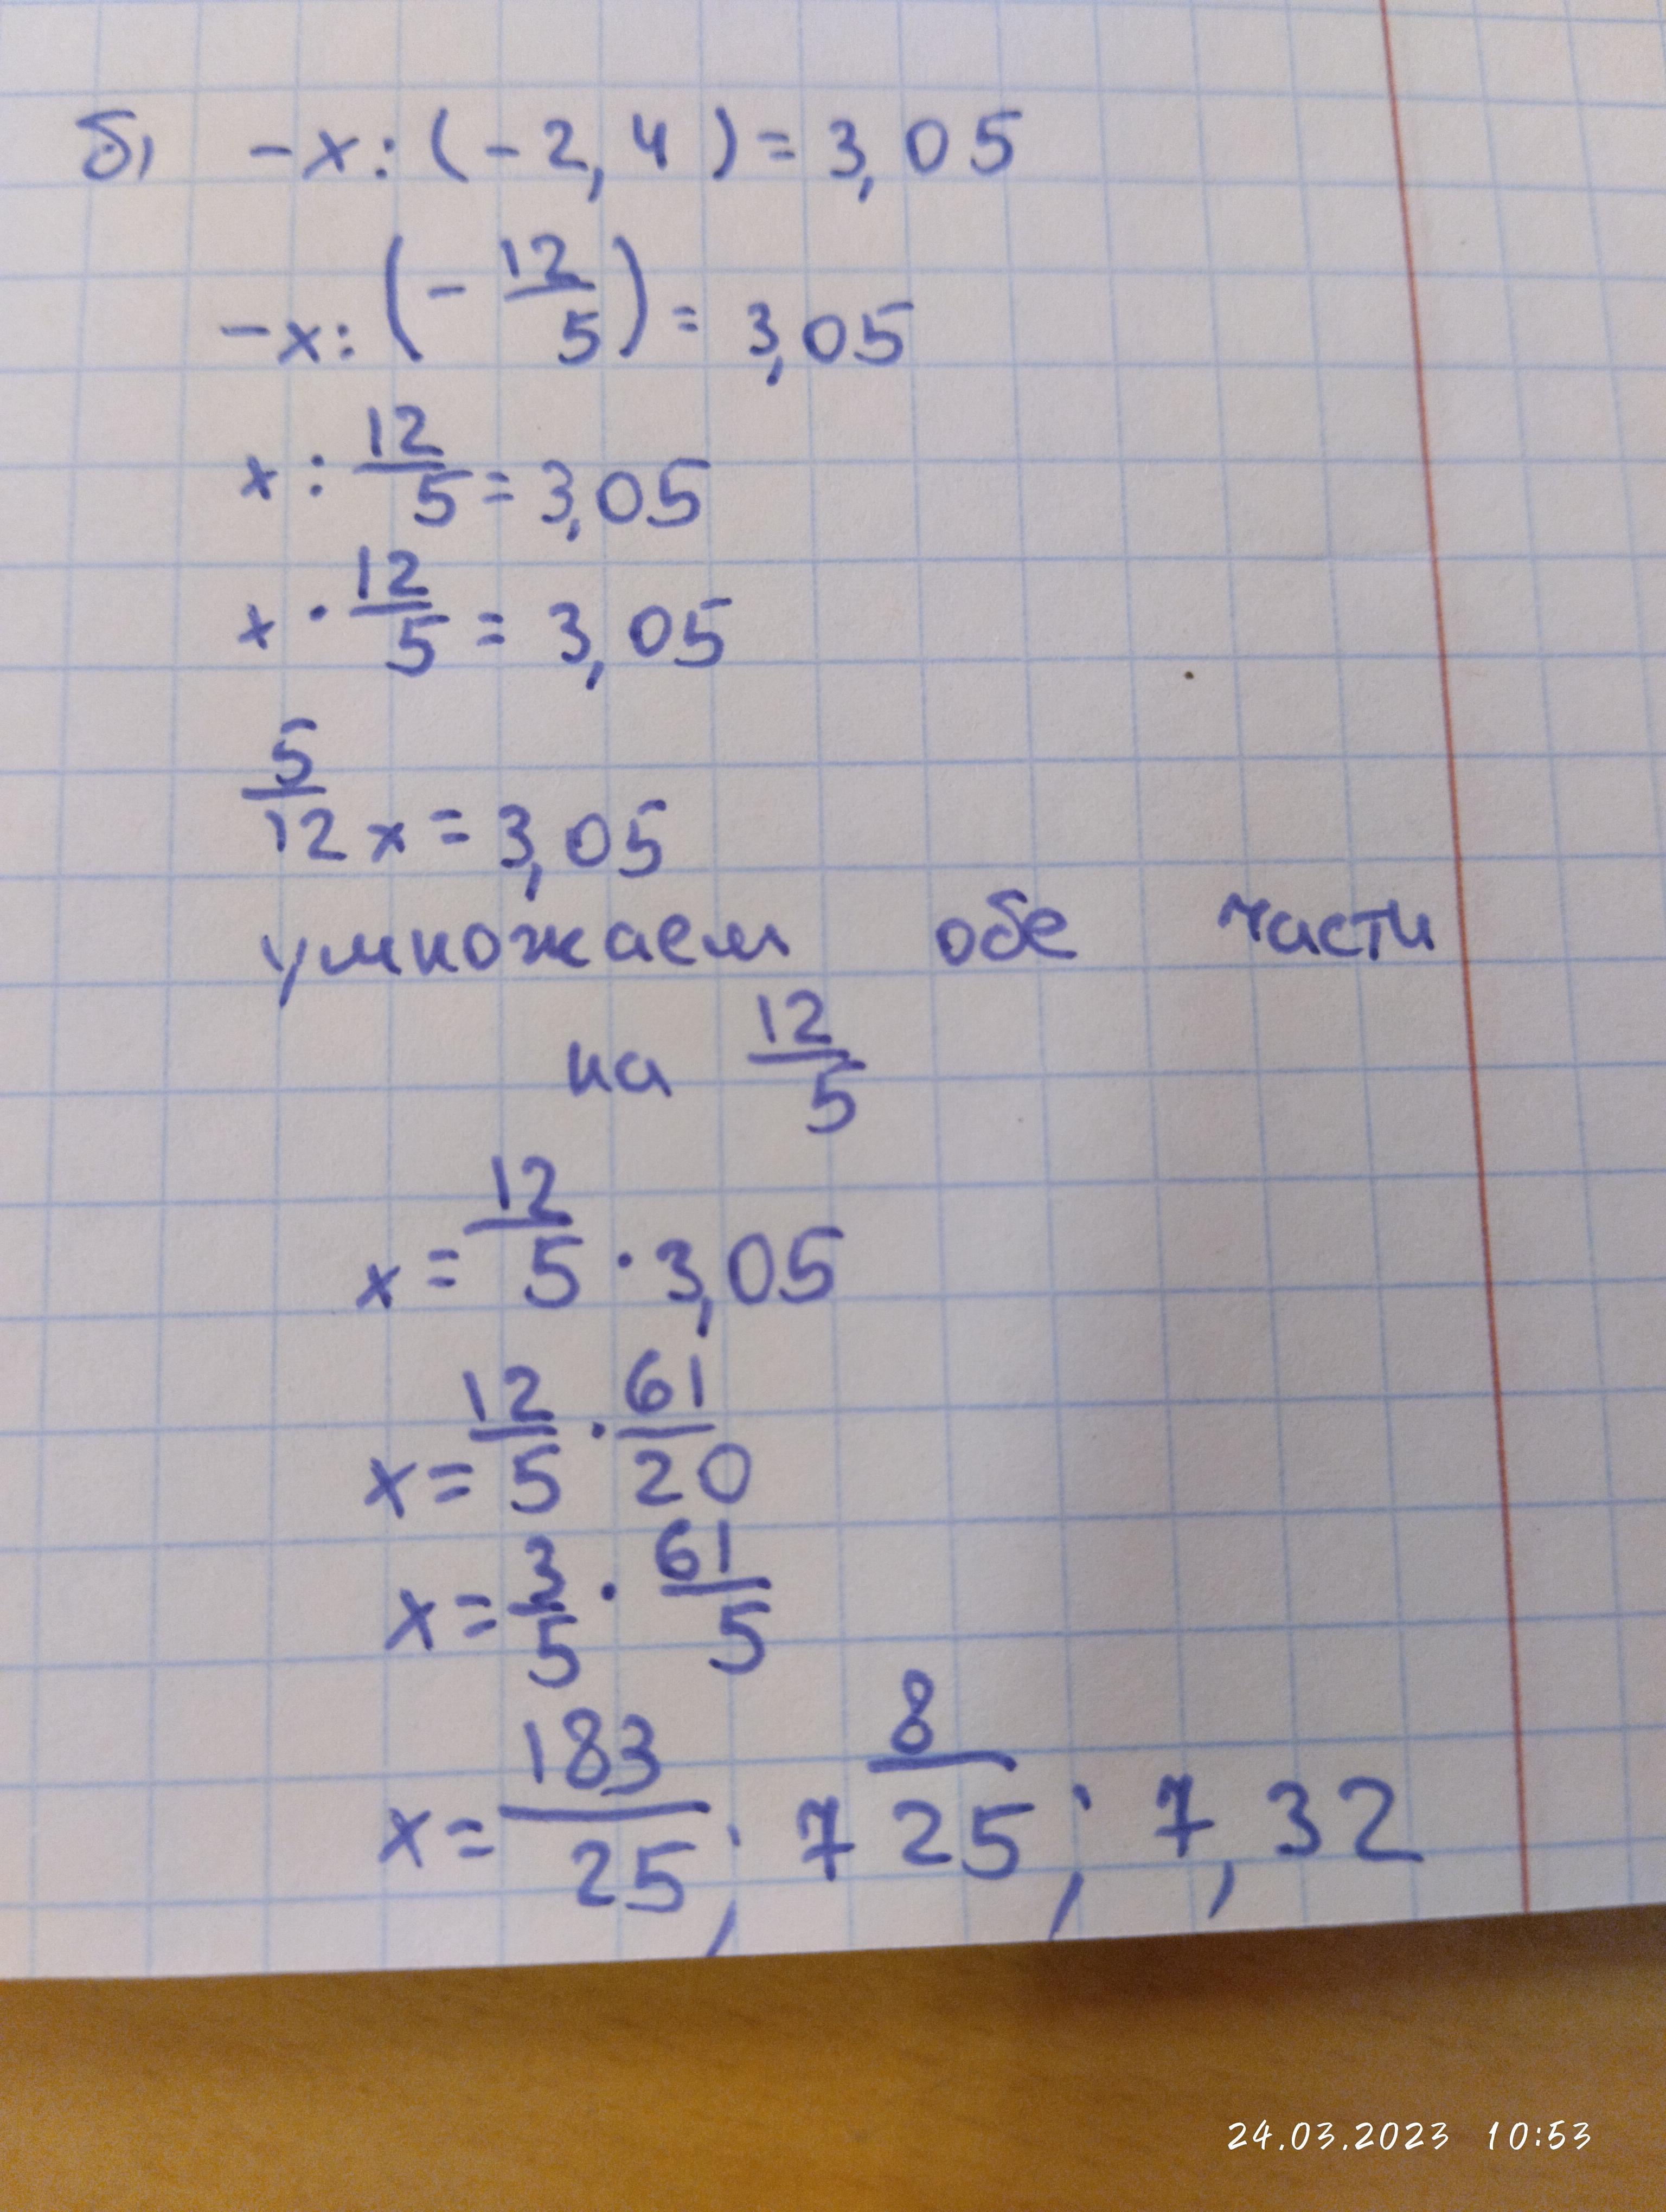 б) -x : (-2,4) = 3,05
-x : (-12/5) = 3,05
x : 12/5 = 3,05
x · 12/5 = 3,05
5/12 x = 3,05
умножаем обе части
на 12/5
x = 12/5 · 3,05
x = 12/5 · 61/20
x = 3/5 · 61/5
x = 183/25 ; 7 8/25 ; 7,32
24.03.2023 10:53